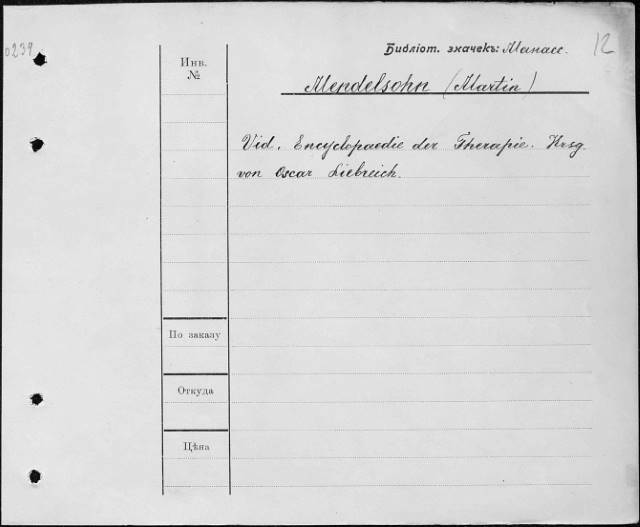 0239
Библіот. значекъ: Манасс.
12
Инв.
№
Mendelsohn (Martin)
Vid. Encyclopaedie der Therapie. Hrsg.
von Oscar Liebreich.
По заказу
Откуда
Цѣна